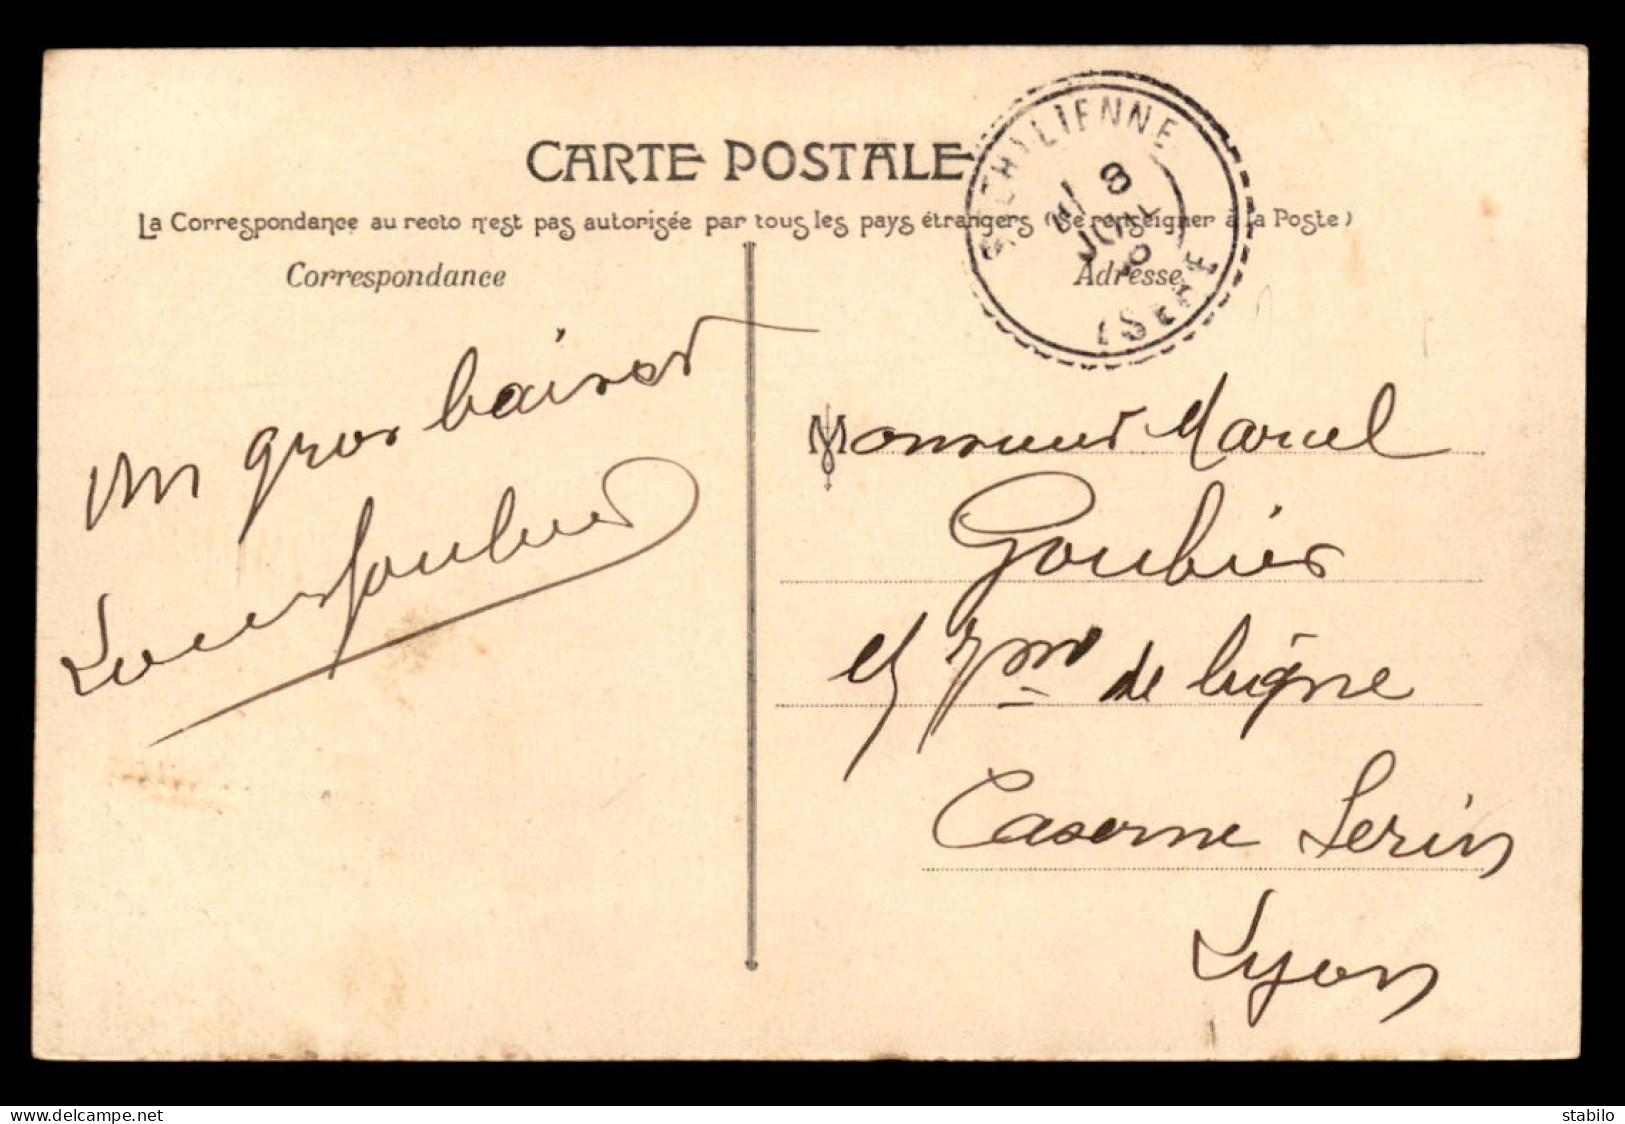 CARTE POSTALE
La Correspondance au recto n'est pas autorisée par tous les pays étrangers (Se renseigner à la Poste)
Correspondance
Adresse
ECHILIENNE
8
JUIL
ISERE
Un gros baiser
Monsieur Marcel
Goubier
de ligne
Caserne Serin
Lyon
delcampe.net
stabilo